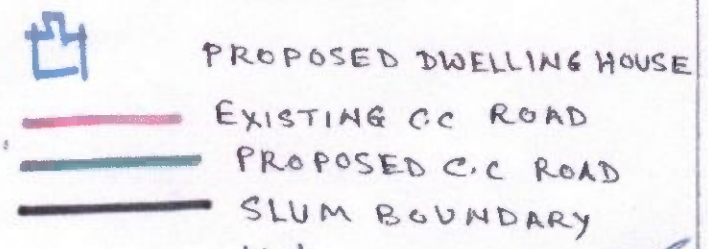 PROPOSED DWELLING HOUSE
EXISTING C.C ROAD
PROPOSED C.C ROAD
SLUM BOUNDARY